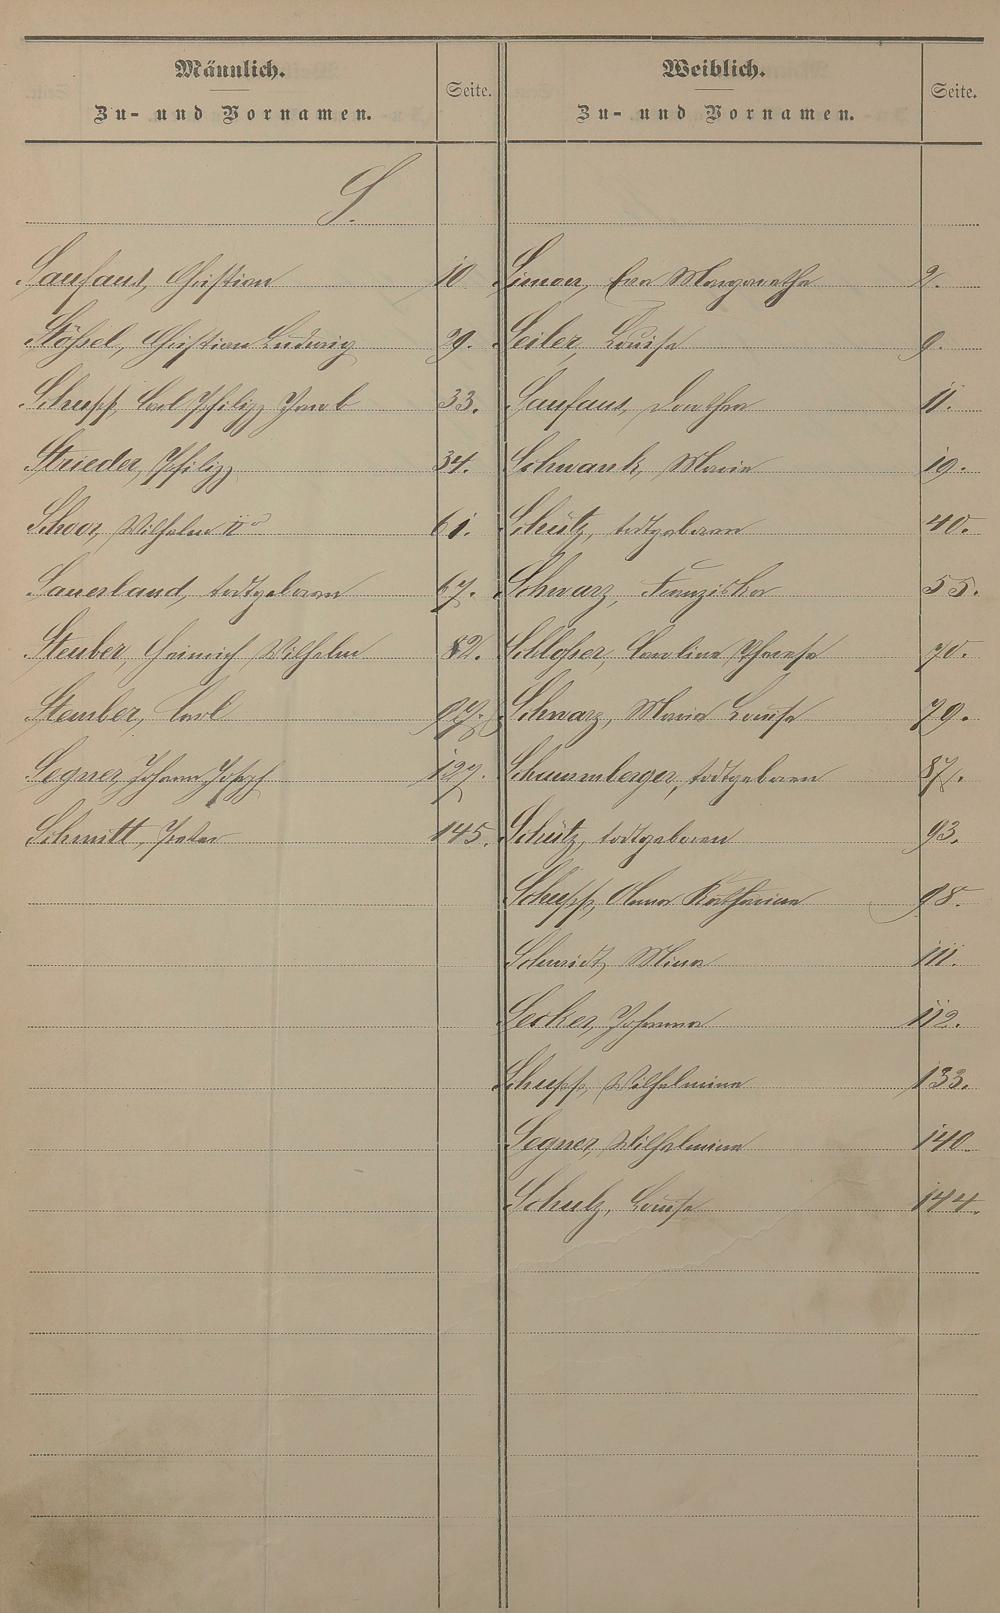 Männlich.
Zu- und Vornamen.
Seite.
S.
Saufaus, Christian 10
Stößel, Christian Ludwig 29.
Schupp, Carl Philipp Jacob 33.
Strieder, Philipp 34.
Schoor, Wilhelm IIr 61.
Sauerland, todtgeboren 67.
Steuber, Heinrich Wilhelm 82.
Steuber, Carl 97.
Segner, Johann Joseph 127.
Schmitt, Peter 145.
Weiblich.
Zu- und Vornamen.
Seite.
Simon, Eva Margarethe 2.
Seiler, Louise 9.
Saufaus, Dorothea 11.
Schwank, Maria 19.
Schütz, todtgeboren 40.
Schwarz, Franziska 55.
Schloßer, Caroline Therese 70.
Schwarz, Maria Louise 79.
Schaumberger, todtgeboren 87.
Schütz, todtgeboren 93.
Schupp, Anna Katharina 98.
Schmidt, Mina 111.
Secker, Johanna 112.
Schupp, Wilhelmine 133.
Segner, Wilhelmine 140.
Schulz, Louise 144.